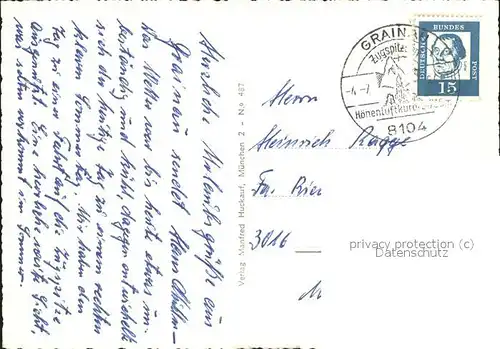 Herzliche Urlaubsgrüße aus
Grainau sendet Hans
Das Wetter war bis heute etwas un-
beständig und kühl, dagegen entwickelte
sich der heutige Tag zu einem rechten
klaren Sommertag. Wir haben den
Tag zu einer Fahrt auf die Zugspitze
ausgenützt. Eine herrliche weite Sicht,
was selten vorkommt im Sommer.
Verlag Manfred Huckauf, München 2 - N.º 487
GRAINAU
Zugspitz
-4.-7.
Höhenluftkurort
8104
DEUTSCHE BUNDESPOST
15
Herrn
Heinrich
Fa.
3016
privacy protection (c)
Datenschutz